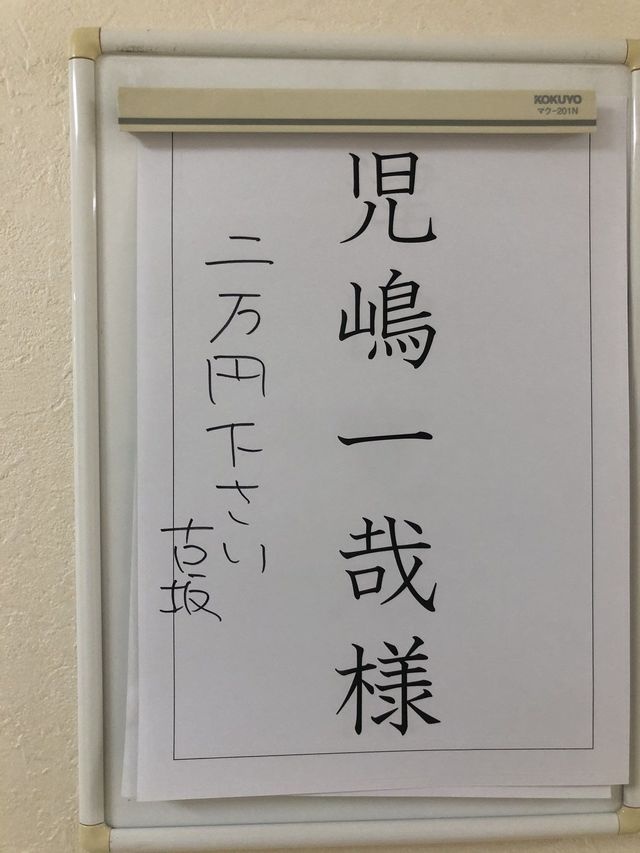 KOKUYO
マク-201N
児嶋一哉様
二万円下さい
古坂